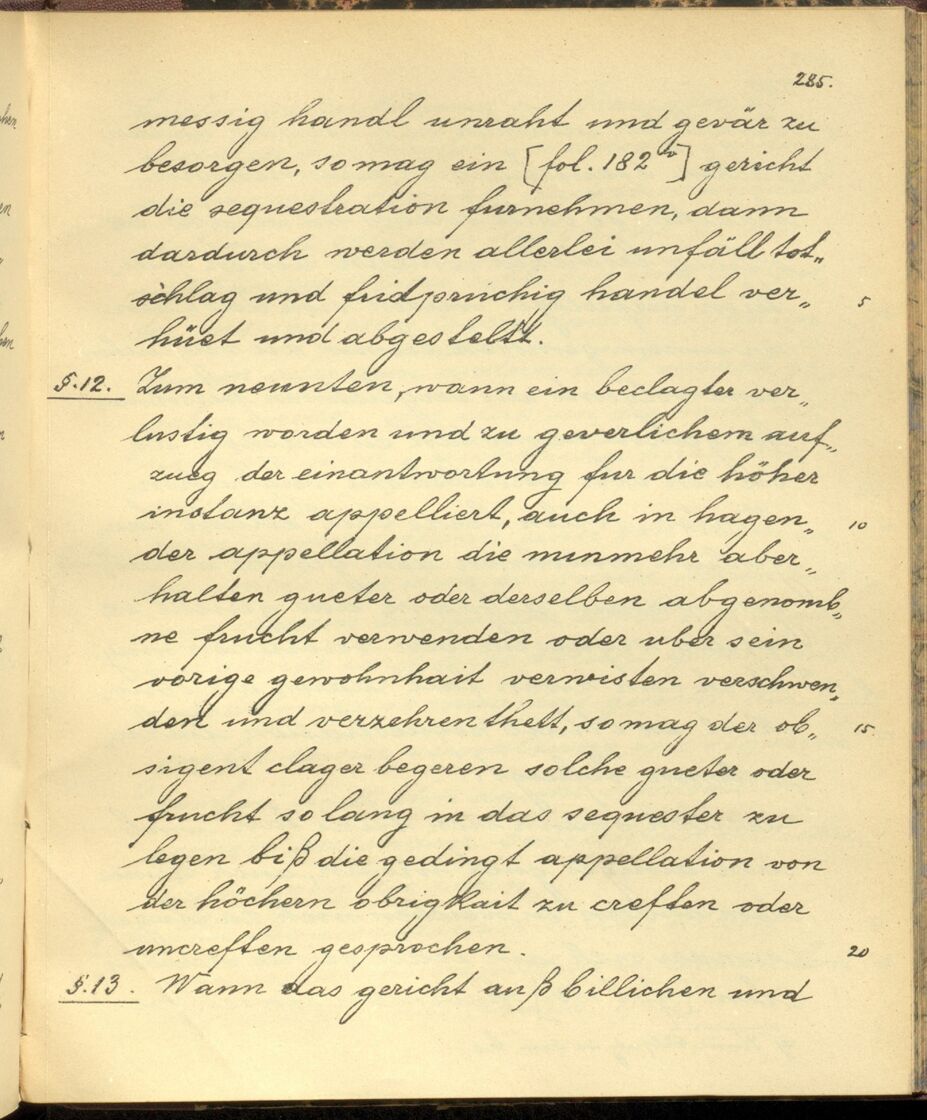 285.
messig handl unraht und gevär zu
besorgen, so mag ein [fol. 182v] gericht
die sequestration furnehmen, dann
dardurch werden allerlei unfäll tot„
schlag und fridpruchig handel ver„ 5
hüet und abgestellt.
§.12. Zum neunten, wann ein beclagter ver„
lustig worden und zu geverlichem auf„
zueg der einantwortung fur die höher
instanz appelliert, auch in hagen„ 10
der appellation die nunmehr aber„
halten gueter oder derselben abgenomb„
ne frucht verwenden oder uber sein
vorige gewohnhait verwisten verschwen„
den und verzehren thett, so mag der ob„ 15
sigent clager begeren solche gueter oder
frucht so lang in das sequester zu
legen biß die gedingt appellation von
der höchern obrigkait zu creften oder
uncreften gesprochen. 20
§.13. Wann das gericht auß billichen und